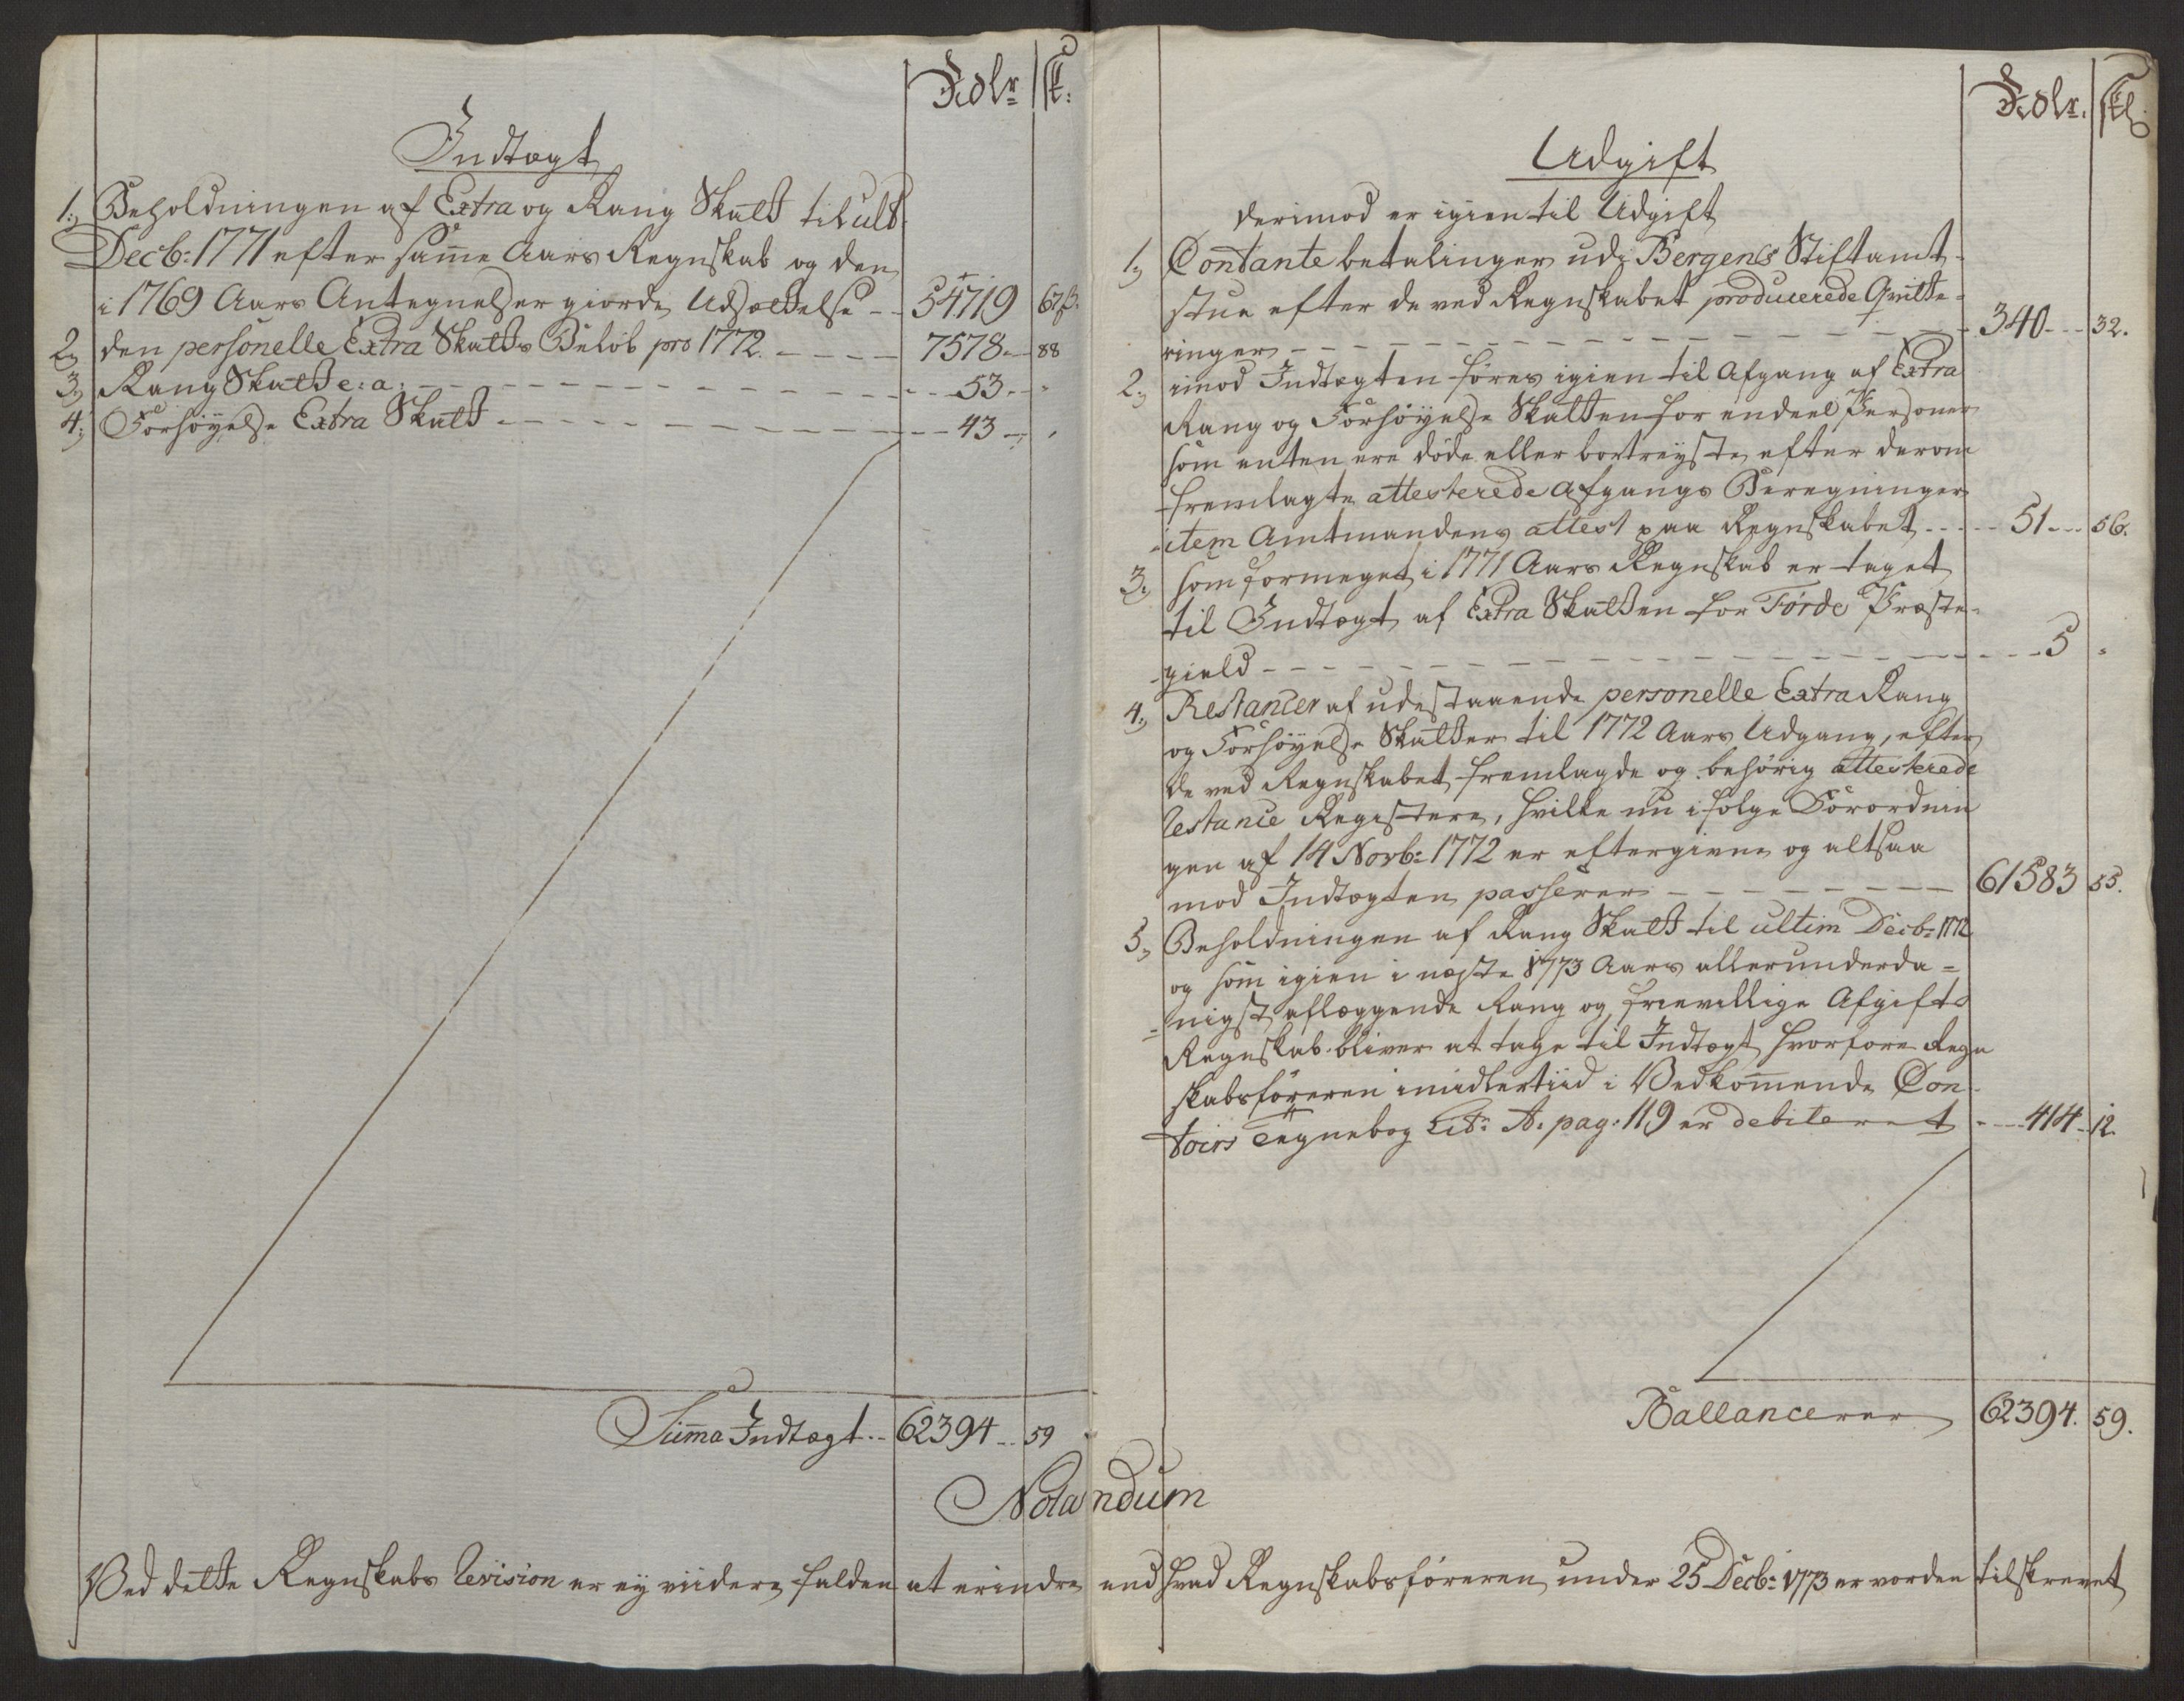 Rdlr sk:
Indtægt
1., Beholdningen af Extra og Rang Skatt til ult
Decb: 1771 efter samme Aars Regnskab og den
i 1769 Aars Antegnelser giorde Udsættelse -- 54719 67 ß.
2., den personelle Extra Skatts Beløb pro 1772. ---- 7578 -- 88
3., Rang Skatt e: a: ---- 53 -- "
4., Forhøyelse Extra Skatt ---- 43 -- "
Summa Indtægt -- 62394 -- 59
Rdlr. skl
Udgift
derimod er igien til Udgift
1., Contante betalinger udi Bergens Stiftamt-
stue efter de ved Regnskabet producerede Qvitte-
ringer ---- 340 --- 32.
2., imod Indtægten føres igien til Afgang af Extra
Rang og Forhøyelse Skatten for endeel Personer
som enten ere døde eller bortreyste, efter derom
fremlagte attesterede Afgangs Beregninger
item Amtmandens attest paa Regnskabet ---- 51 --- 56.
3., som formeget i 1771 Aars Regnskab er taget
til Indtægt af Extra Skatten for Førde Præste-
gield ---- 5 "
4., Restancer af udestaaende personelle Extra Rang
og Forhøyelse Skatter til 1772 Aars Udgang, efter
de ved Regnskabet fremlagde og behørig attesterede
Restance Registere, hvilke nu i følge Forordnin
gen af 14 Novb: 1772 er eftergivne og altsaa
mod Indtægten passerer ---- 61583 55.
5., Beholdningen af Rang Skatt til ultim Decb: 1772
og som igien i næste 1773 Aars allerunderda=
=nigst aflæggende Rang og frievillige Afgifts
Regnskab bliver at tage til Indtægt, hvorfore Regn
skabsføreren imidlertiid i Vedkommende Con-
toirs Tegnebog Litr: A. pag: 119 er debiteret ---- 414 -- 12.
Ballancerer 62394. 59.
Notandum
Ved dette Regnskabs Revision er ey viidere falden at erindre end hvad Regnskabsføreren under 25 Decb: 1773 er vorden tilskrevet